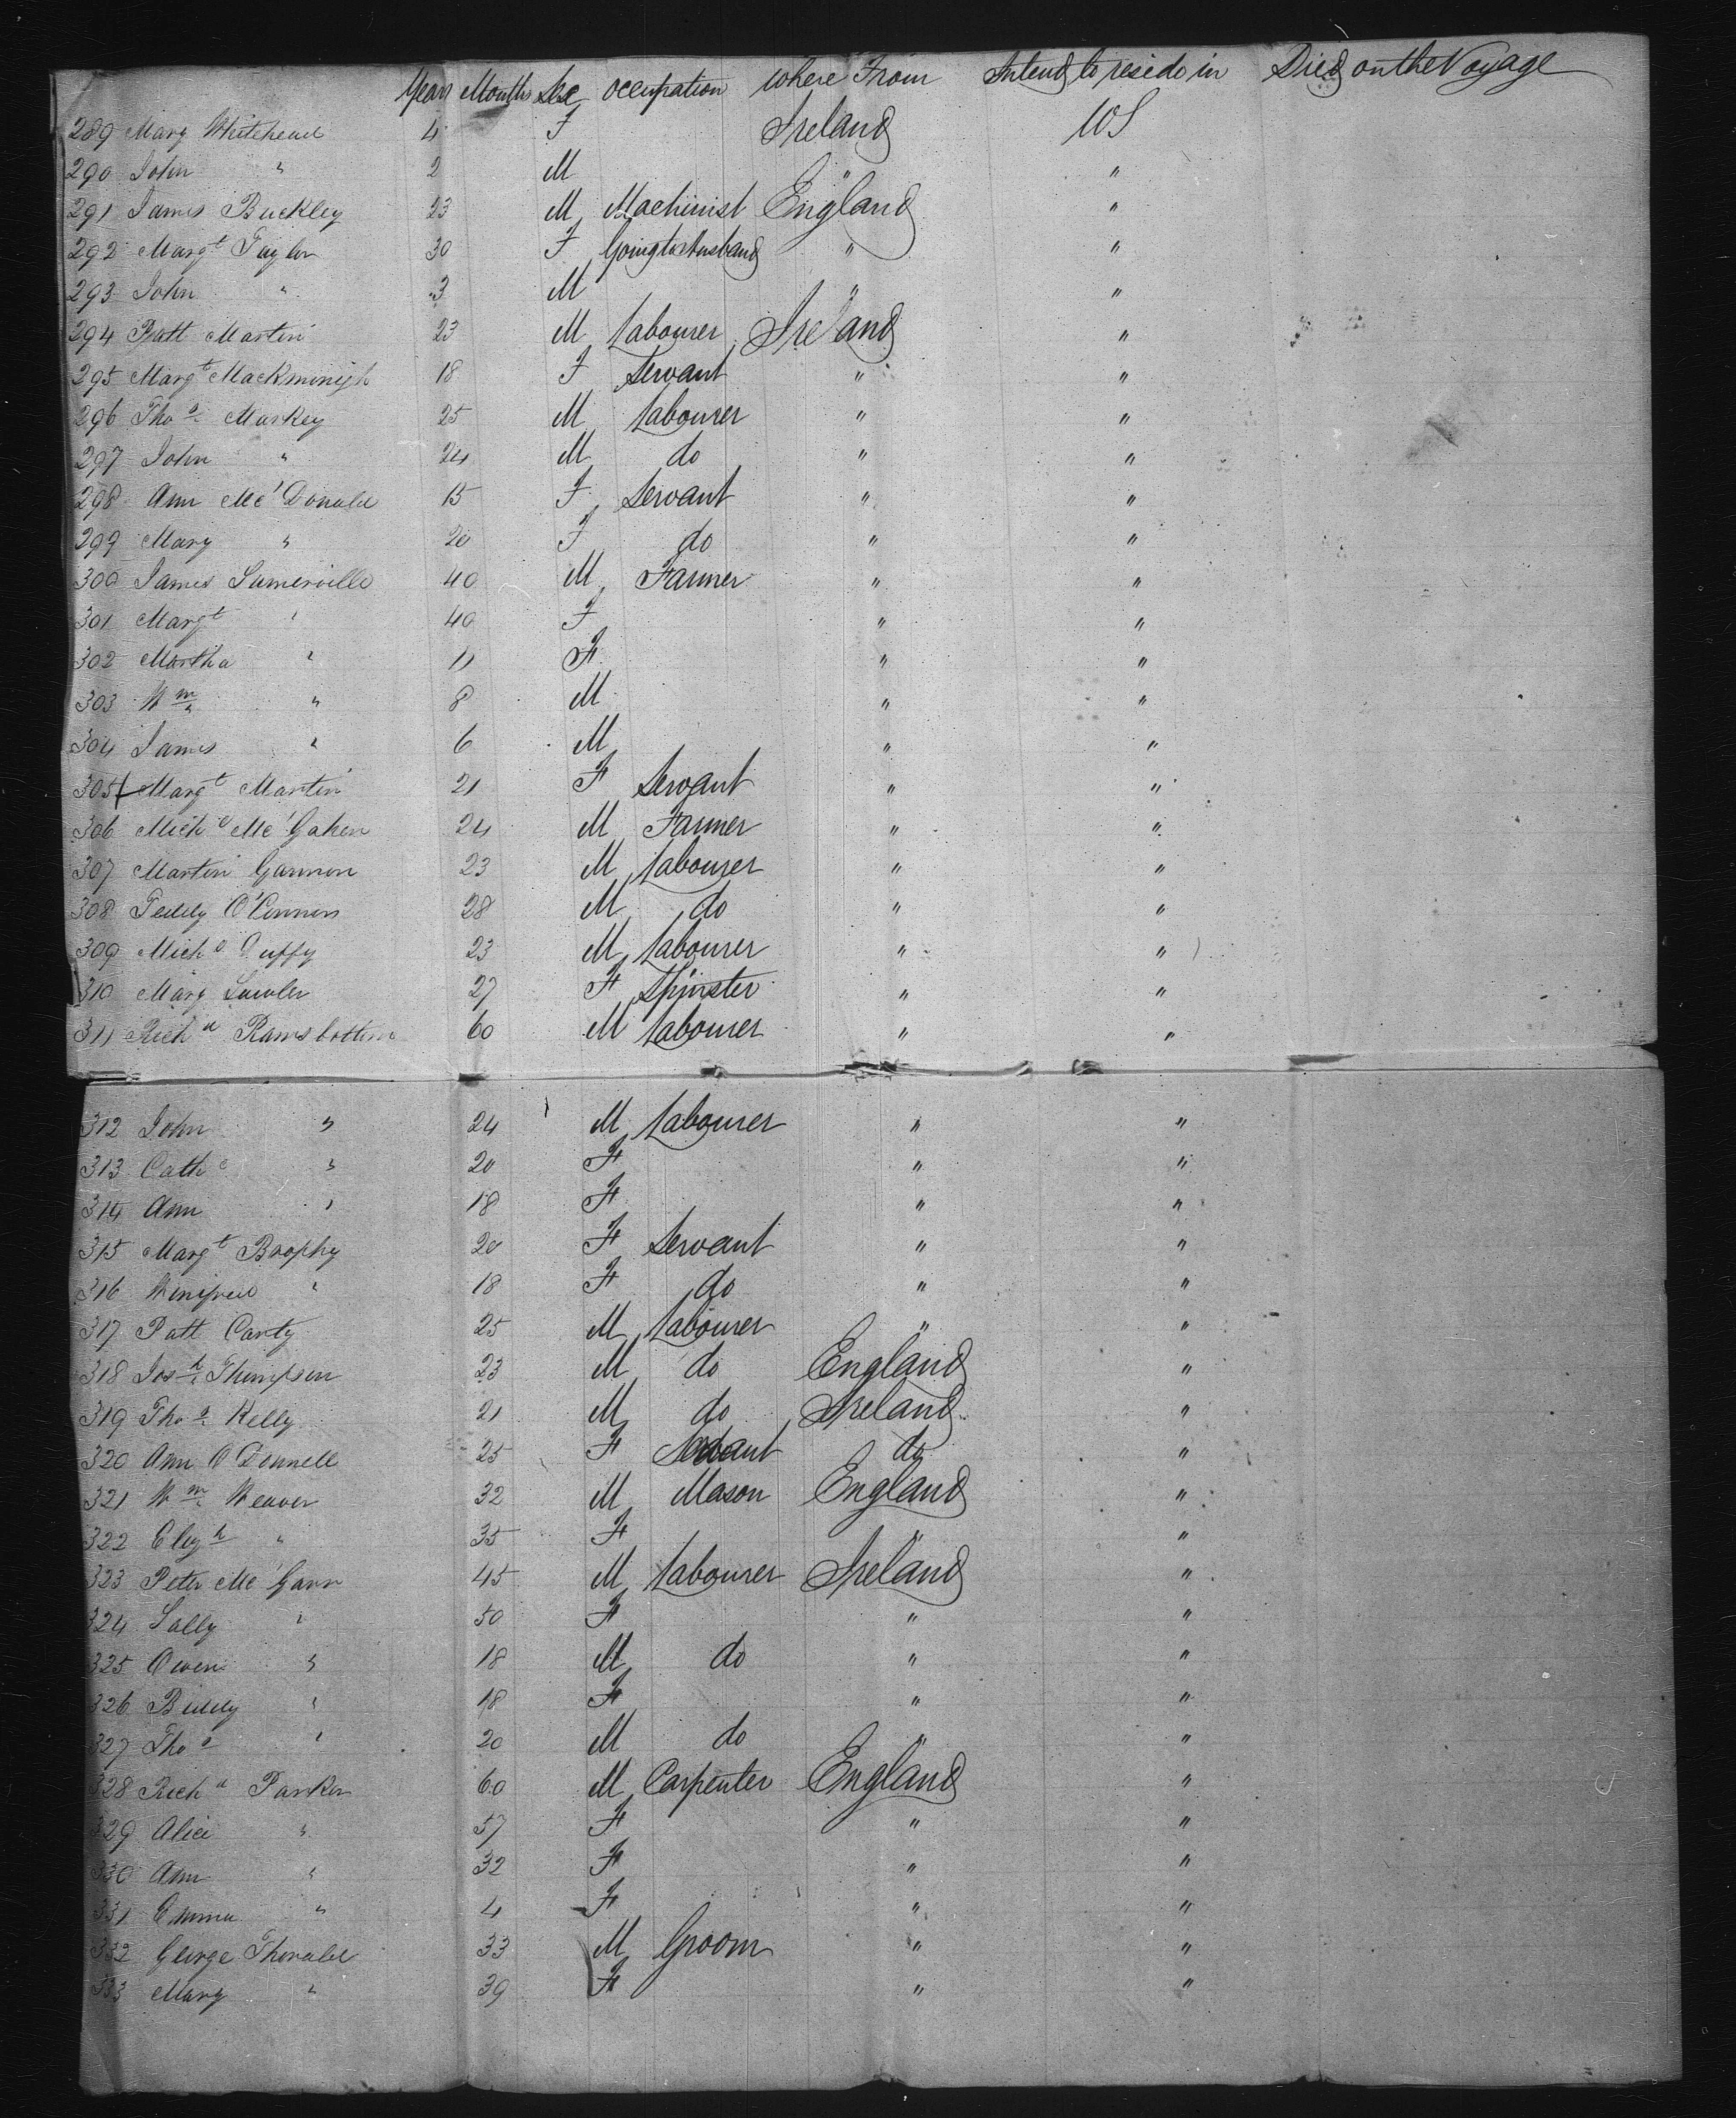 Years Months Sex occupation where From Intend to reside in Died on the Voyage
289 Mary Whitehead 4 F Ireland US
290 John " 2 M " "
291 James Buckley 23 M Machinist England "
292 Margt Taylor 30 F Going to Husband " "
293 John " 3 M " "
294 Patt Martin 23 M Labourer Ireland "
295 Margt 18 F Servant " "
296 Thos Markey 25 M Labourer " "
297 John " 24 M do " "
298 Ann Mc'Donald 15 F Servant " "
299 Mary " 20 F do " "
300 James Sumerville 40 M Farmer " "
301 Margt " 40 F " "
302 Martha " 11 F " "
303 Wm " 8 M " "
304 James " 6 M " "
305 Margt Martin 21 F Servant " "
306 Michl Mc'Gahen 24 M Farmer " "
307 Martin Gannon 23 M Labourer " "
308 Teddy O'Connors 28 M do " "
309 Michl Duffy 23 M Labourer " "
310 Mary Lawler 27 F Spinster " "
311 Richd Ramsbottom 60 M Labourer " "
312 John " 24 M Labourer " "
313 Cathe " 20 F " "
314 Ann " 18 F " "
315 Margt Brophy 20 F Servant " "
316 Winifred " 18 F do " "
317 Patt Carty 25 M Labourer " "
318 Josh Thompson 23 M do England "
319 Thos Kelly 21 M do Ireland "
320 Ann O'Donnell 25 F Servant do "
321 Wm Weaver 32 M Mason England "
322 Elizh " 35 F " "
323 Peter Mc'Gann 45 M Labourer Ireland "
324 Sally " 50 F " "
325 Owen " 18 M do " "
326 Biddy " 18 F " "
327 Thos " 20 M do " "
328 Richd Parker 60 M Carpenter England "
329 Alice " 57 F " "
330 Ann " 32 F " "
331 Emma " 4 F " "
332 George 33 M Groom " "
333 Mary " 39 F " "